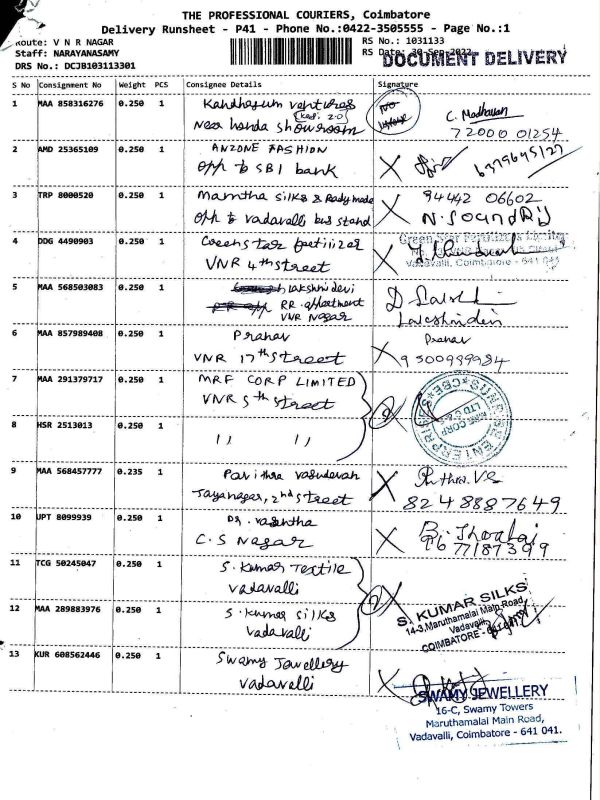 THE PROFESSIONAL COURIERS, Coimbatore
Delivery Runsheet - P41 - Phone No.:0422-3505555 - Page No.:1
Route: V N R NAGAR
RS No.: 1031133
Staff: NARAYANASAMY
RS Date: 30-Sep-2022
DOCUMENT DELIVERY
DRS No.: DCJB103113301
S No Consignment No Weight PCS Consignee Details Signature
1 MAA 858316276 0.250 1 ventures
Near honda showroom
C. Madhavan
72000 01254
2 AMD 25365109 0.250 1 ANZONE FASHION
opp to SBI bank
6379645127
3 TRP 8000520 0.250 1 Mamtha silks & Readymade
opp to vadavalli bus stand
94442 06602
4 DDG 4490903 0.250 1 Greenstar fertilizer
VNR 4th street
Green Star Fertilizers Limited
Vadavalli, Coimbatore - 641 041
5 MAA 568503083 0.250 1 lakshmidevi
RR. appartment
VNR Nagar
6 MAA 857989408 0.250 1 Pranav
VNR 17th street
Pranav
9500999984
7 MAA 291379717 0.250 1 MRF CORP LIMITED
VNR 5th street
MRF CORP LTD
8 HSR 2513013 0.250 1 ,, ,,
9 MAA 568457777 0.235 1 Pavithra vasudevan
Jayanagar, 2nd street
8248887649
10 UPT 8099939 0.250 1 Dr. vasantha
C.S Nagar
11 TCG 50245047 0.250 1 S. Kumar Textile
vadavalli
12 MAA 289883976 0.250 1 S. Kumar silks
vadavalli
S. KUMAR SILKS
14-3, Maruthamalai Main Road,
Vadavalli,
COIMBATORE -
13 KUR 608562446 0.250 1 Swamy Jewellery
vadavalli
SWAMY JEWELLERY
16-C, Swamy Towers
Maruthamalai Main Road,
Vadavalli, Coimbatore - 641 041.